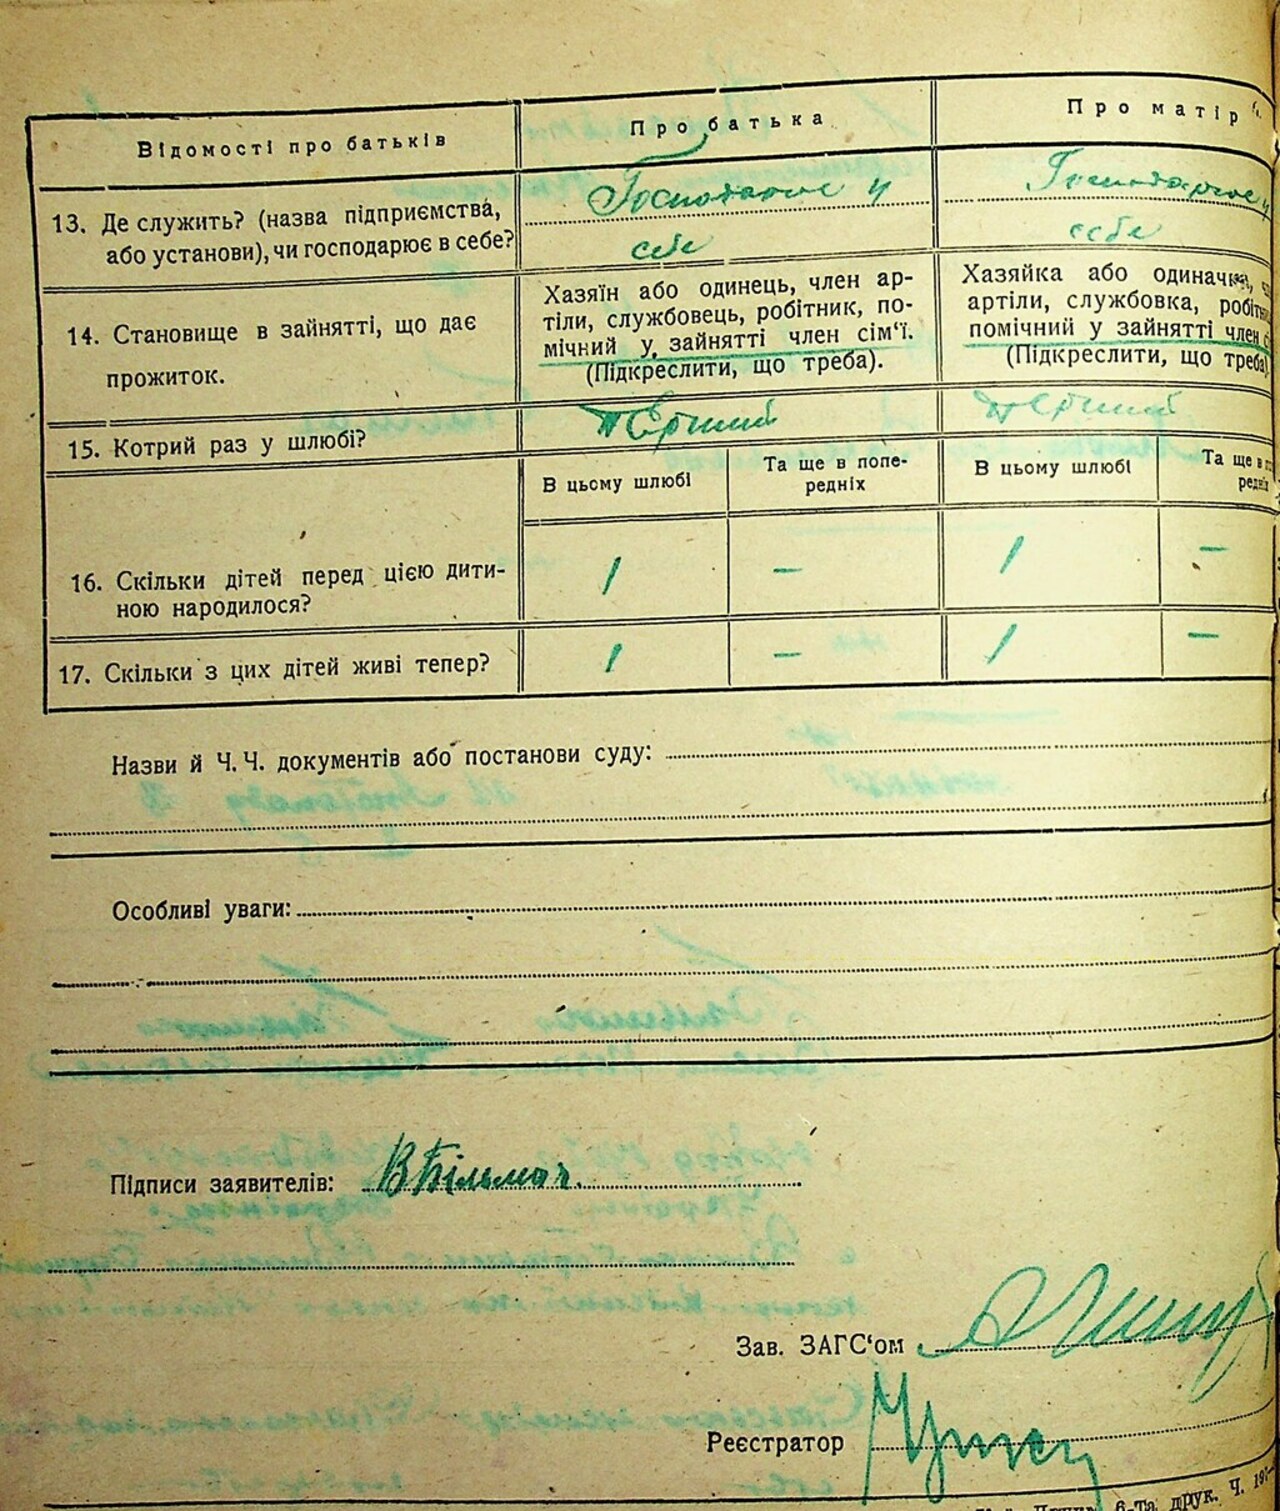 Відомості про батьків
Про батька
Про матір
13. Де служить? (назва підприємства, або установи), чи господарює в себе?
Господарює у
себе
Господарює у
себе
14. Становище в зайнятті, що дає
прожиток.
Хазяїн або одинець, член ар-
тіли, службовець, робітник, по-
мічний у зайнятті член сім‘ї.
(Підкреслити, що треба).
Хазяйка або одиначка,
артіли, службовка,
помічний у зайнятті член
(Підкреслити, що треба)
15. Котрий раз у шлюбі?
Перший
Перший
В цьому шлюбі
Та ще в попе-
редніх
В цьому шлюбі
Та ще в
16. Скільки дітей перед цією дити-
ною народилося?
1
–
1
–
17. Скільки з цих дітей живі тепер?
1
–
1
–
Назви й Ч. Ч. документів або постанови суду:
Особливі уваги:
Підписи заявителів: В Більмач
Зав. ЗАГС‘ом
Реєстратор
6-та друк. Ч.